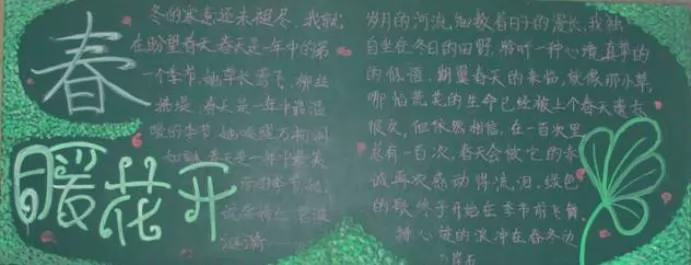 春
暖花开
冬的寒意还未褪尽，我就
在盼望春天，春天是一年中的第
一个季节，她草长莺飞，柳丝
拂堤，春天是一年中最温
暖的季节，她唤醒万物
如
春天是一年中最美
的季节，她
岁月的河流，细数着日子的漫长，我独
自坐在冬日的田野，聆听一种心境真挚的
的低语，期望春天的来临，就像那小草，
哪怕荒芜的生命已经被上个春天遗忘
很久，但依然相信，在一百次里
总有一百次，春天会被它的虔
诚再次感动得流泪，绿色
的歌终于开始在季节前飞舞，
心 的浪冲在春冬边